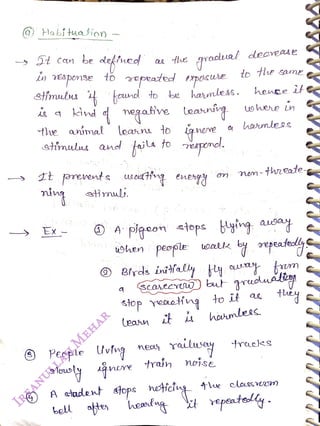 ⓐ Habituation -
→ It can be defined as the gradual decrease
in response to repeated exposure to the same
stimulus if found to be harmless. hence it
is a kind of negative learning where in
the animal learns to ignore a harmless
stimulus and fails to respond.
→ It prevents wasting energy on non-threate-
ning stimuli.
→ Ex - ① A pigeon stops flying away
when people walk by repeatedly
② Birds initially fly away from
a scarecrow but gradually
stop reacting to it as they
learn it is harmless.
③ People living near railway tracks
slowly ignore train noise
④ A student stops noticing the classroom
bell after hearing it repeatedly.
IRFANULLAH MEHAR